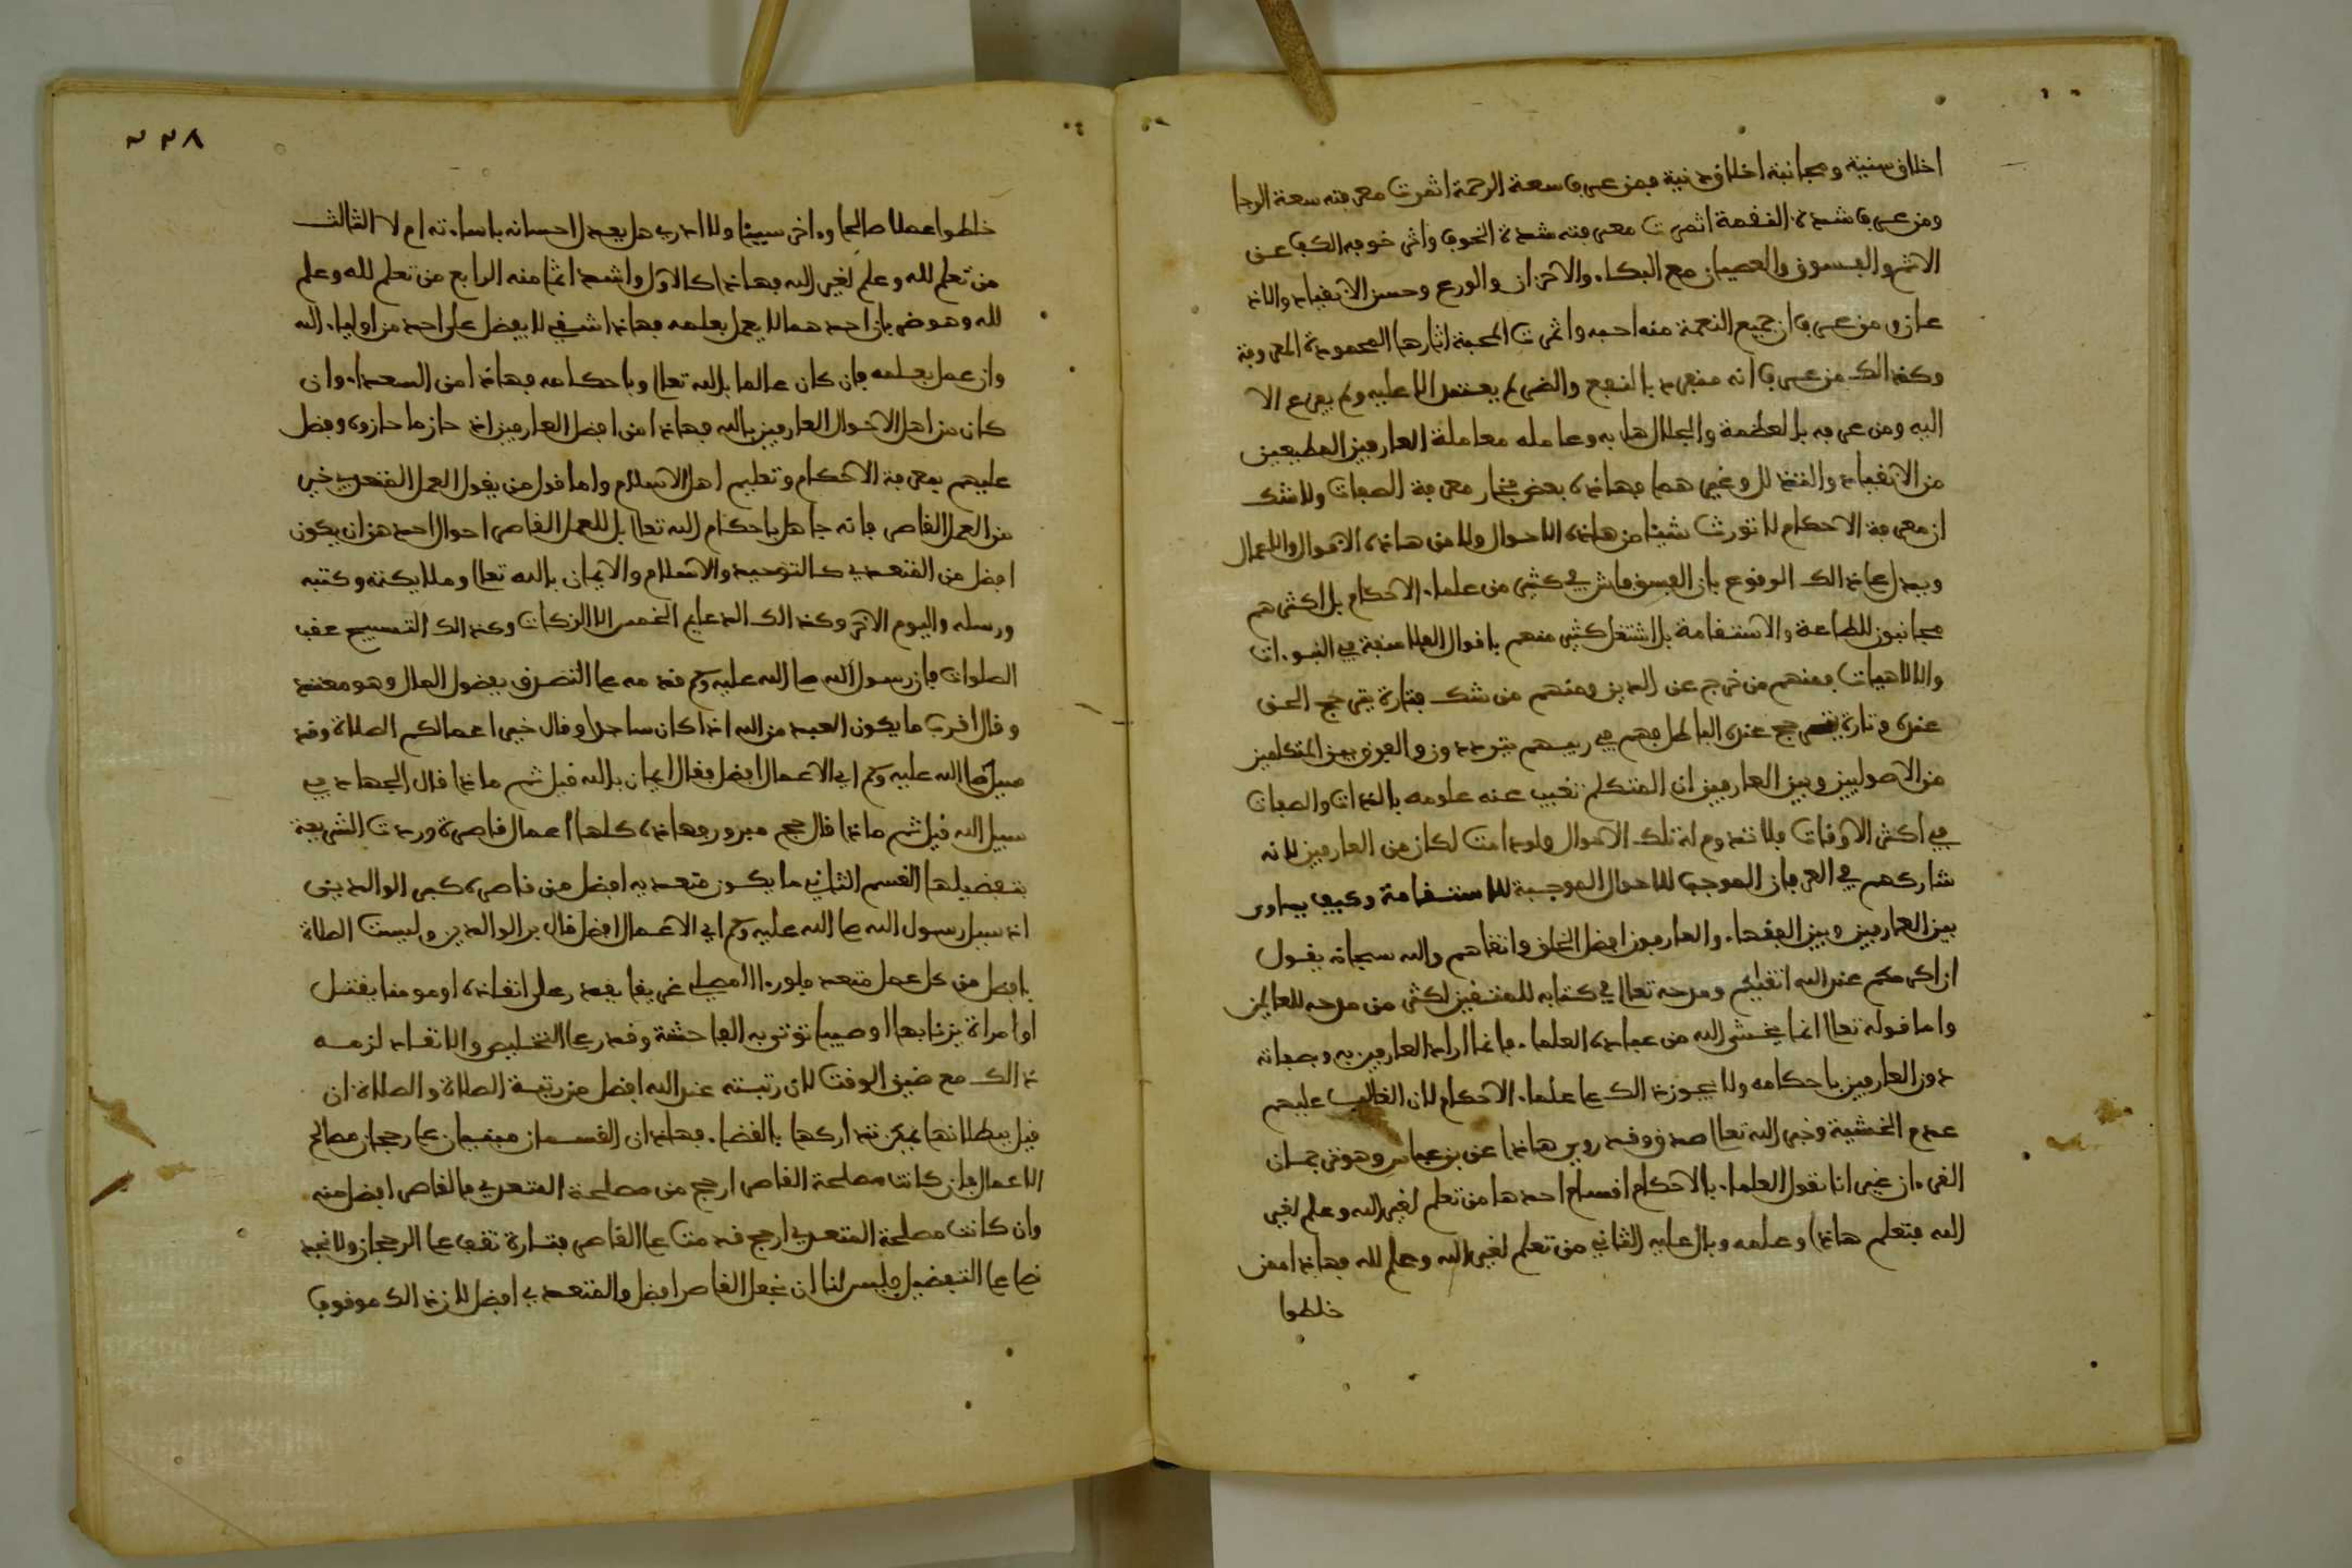 اخلاق سنية ومجانبة اخلاق دنية فمن عرف سعة الرحمة اثمرت معرفته سعة الرجا
ومن عرف شدة النقمة اثمرت معرفته شدة الخوف واثمر خوفه الكف عن
الاثم والفسوق والعصيان مع البكاء والاحزان والورع وحسن الانقياد والاذ
عان ومن عرف ان جميع النعمة منه احبه واثمرت المحبة اثارها المحمودة المعروفة
وكذالك من عرف انه منفرد بالنفع والضر لم يعتمد الا عليه ولم يفزع الا
اليه ومن عرفه بالعظمة والجلال هابه وعامله معاملة العارفين المطيعين
من الانقياد والتذلل وغيرهما فهاذه بعض ثمار معرفة الصفات ولا شك
ان معرفة الاحكام لا تورث شيئا من هاذه الاحوال ولا من هاذه الاقوال والاعمال
ويدل على ذالك الوقوع فان الفسق فاش في كثير من علماء الاحكام بل اكثرهم
مجانبون للطاعة والاستقامة بل اشتغل كثير منهم باقوال الفلاسفة في النبوءات
والالاهيات فمنهم من خرج عن الدين ومنهم من شك فتارة يترجح الحق
عنده وتارة يترجح عنده الباطل فهم في ريبهم يترددون والفرق بين المتكلمين
من الاصوليين وبين العارفين ان المتكلم تغيب عنه علومه بالذات والصفات
في اكثر الاوقات فلا تدوم له تلك الاحوال ولو دامت لكان من العارفين لانه
شاركهم في العرفان الموجب للاحوال الموجبة للاستقامة وكيف يساوى
بين العارفين وبين الفقهاء والعارفون افضل الخلق واتقاهم والله سبحانه يقول
ان اكرمكم عند الله اتقيكم ومدحه تعالى في كتابه للمتقين اكثر من مدحه للعالمين
واما قوله تعالى انما يخشى الله من عباده العلماء فانما اراد العارفين به وبصفاته
دون العارفين باحكامه ولا يجوز ذالك على علماء الاحكام لان الغالب عليهم
عدم الخشية وخبر الله تعالى صدق وقد روي هاذا عن بن عباس وهو ترجمان
القرءان غير انا نقول العلماء بالاحكام اقسام احدها من تعلم لغير الله وعلم لغير
الله فتعلم هاذا وعلمه وبال عليه الثاني من تعلم لغير الله وعلم لله فهاذا ممن
خلطوا
٢٣٨
خلطوا عملا صالحا وءاخر سيئا ولا ادري هل يعدل احسانه باساءته ام لا الثالث
من تعلم لله وعلم لغير الله فهاذا كالاول واشد اثما منه الرابع من تعلم لله وعلم
لله وهو ضربان احدهما لا يعمل بعلمه فهاذا شقي لا يفضل على احد من اولياء الله
وان عمل بعلمه فان كان عالما بالله تعالى وباحكامه فهاذا من السعداء وان
كان من اهل الاحوال العارفين بالله فهاذا من افضل العارفين اذ حاز ما حازوه وفضل
عليهم بمعرفة الاحكام وتعليم اهل الاسلام واما قول من يقول العمل المتعدي خير
من العمل القاصر فانه جاهل باحكام الله تعالى بل للعمل القاصر احوال احدهن ان يكون
افضل من المتعدي كالتوحيد والاسلام والايمان بالله تعالى وملايكته وكتبه
ورسله واليوم الاخر وكذالك الدعايم الخمس الا الزكات وكذالك التسبيح عقب
الصلوات فان رسول الله صلى الله عليه وسلم قدمه على التصرف بفضول المال وهو متعد
وقال اقرب ما يكون العبد من الله اذا كان ساجدا وقال خير اعمالكم الصلاة وقد
سيل صلى الله عليه وسلم اي الاعمال افضل فقال ايمان بالله قيل ثم ماذا قال الجهاد في
سبيل الله قيل ثم ماذا قال حج مبرور وهاذه كلها اعمال قاصرة وردت الشريعة
بتفضيلها القسم الثاني ما يكون متعديه افضل من قاصره كبر الوالدين
اذ سيل رسول الله صلى الله عليه وسلم اي الاعمال افضل قال بر الوالدين وليست الصلاة
بافضل من كل عمل متعد فلو رءا المصلي غريقا يقدر على انقاذه او مومنا يقتل
او امراة يزنا بها او صبيا توتى به الفاحشة وقدر على التخليص والانقاد لزمه
ذالك مع ضيق الوقت لان رتبته عند الله افضل من رتبة الصلاة والصلاة ان
قيل ببطلانها يمكن تداركها بالقضاء فهاذان القسمان مبنيان على رجحان مصالح
الاعمال فان كانت مصلحة القاصر ارجح من مصلحة المتعدي فالقاصر افضل منه
وان كانت مصلحة المتعدي ارجح قدمت على القاصر فتارة تقف على الرجحان ولا نجد
نصا على التفضيل فليس لنا ان نجعل القاصر افضل والمتعدي افضل لان ذالك موقوف